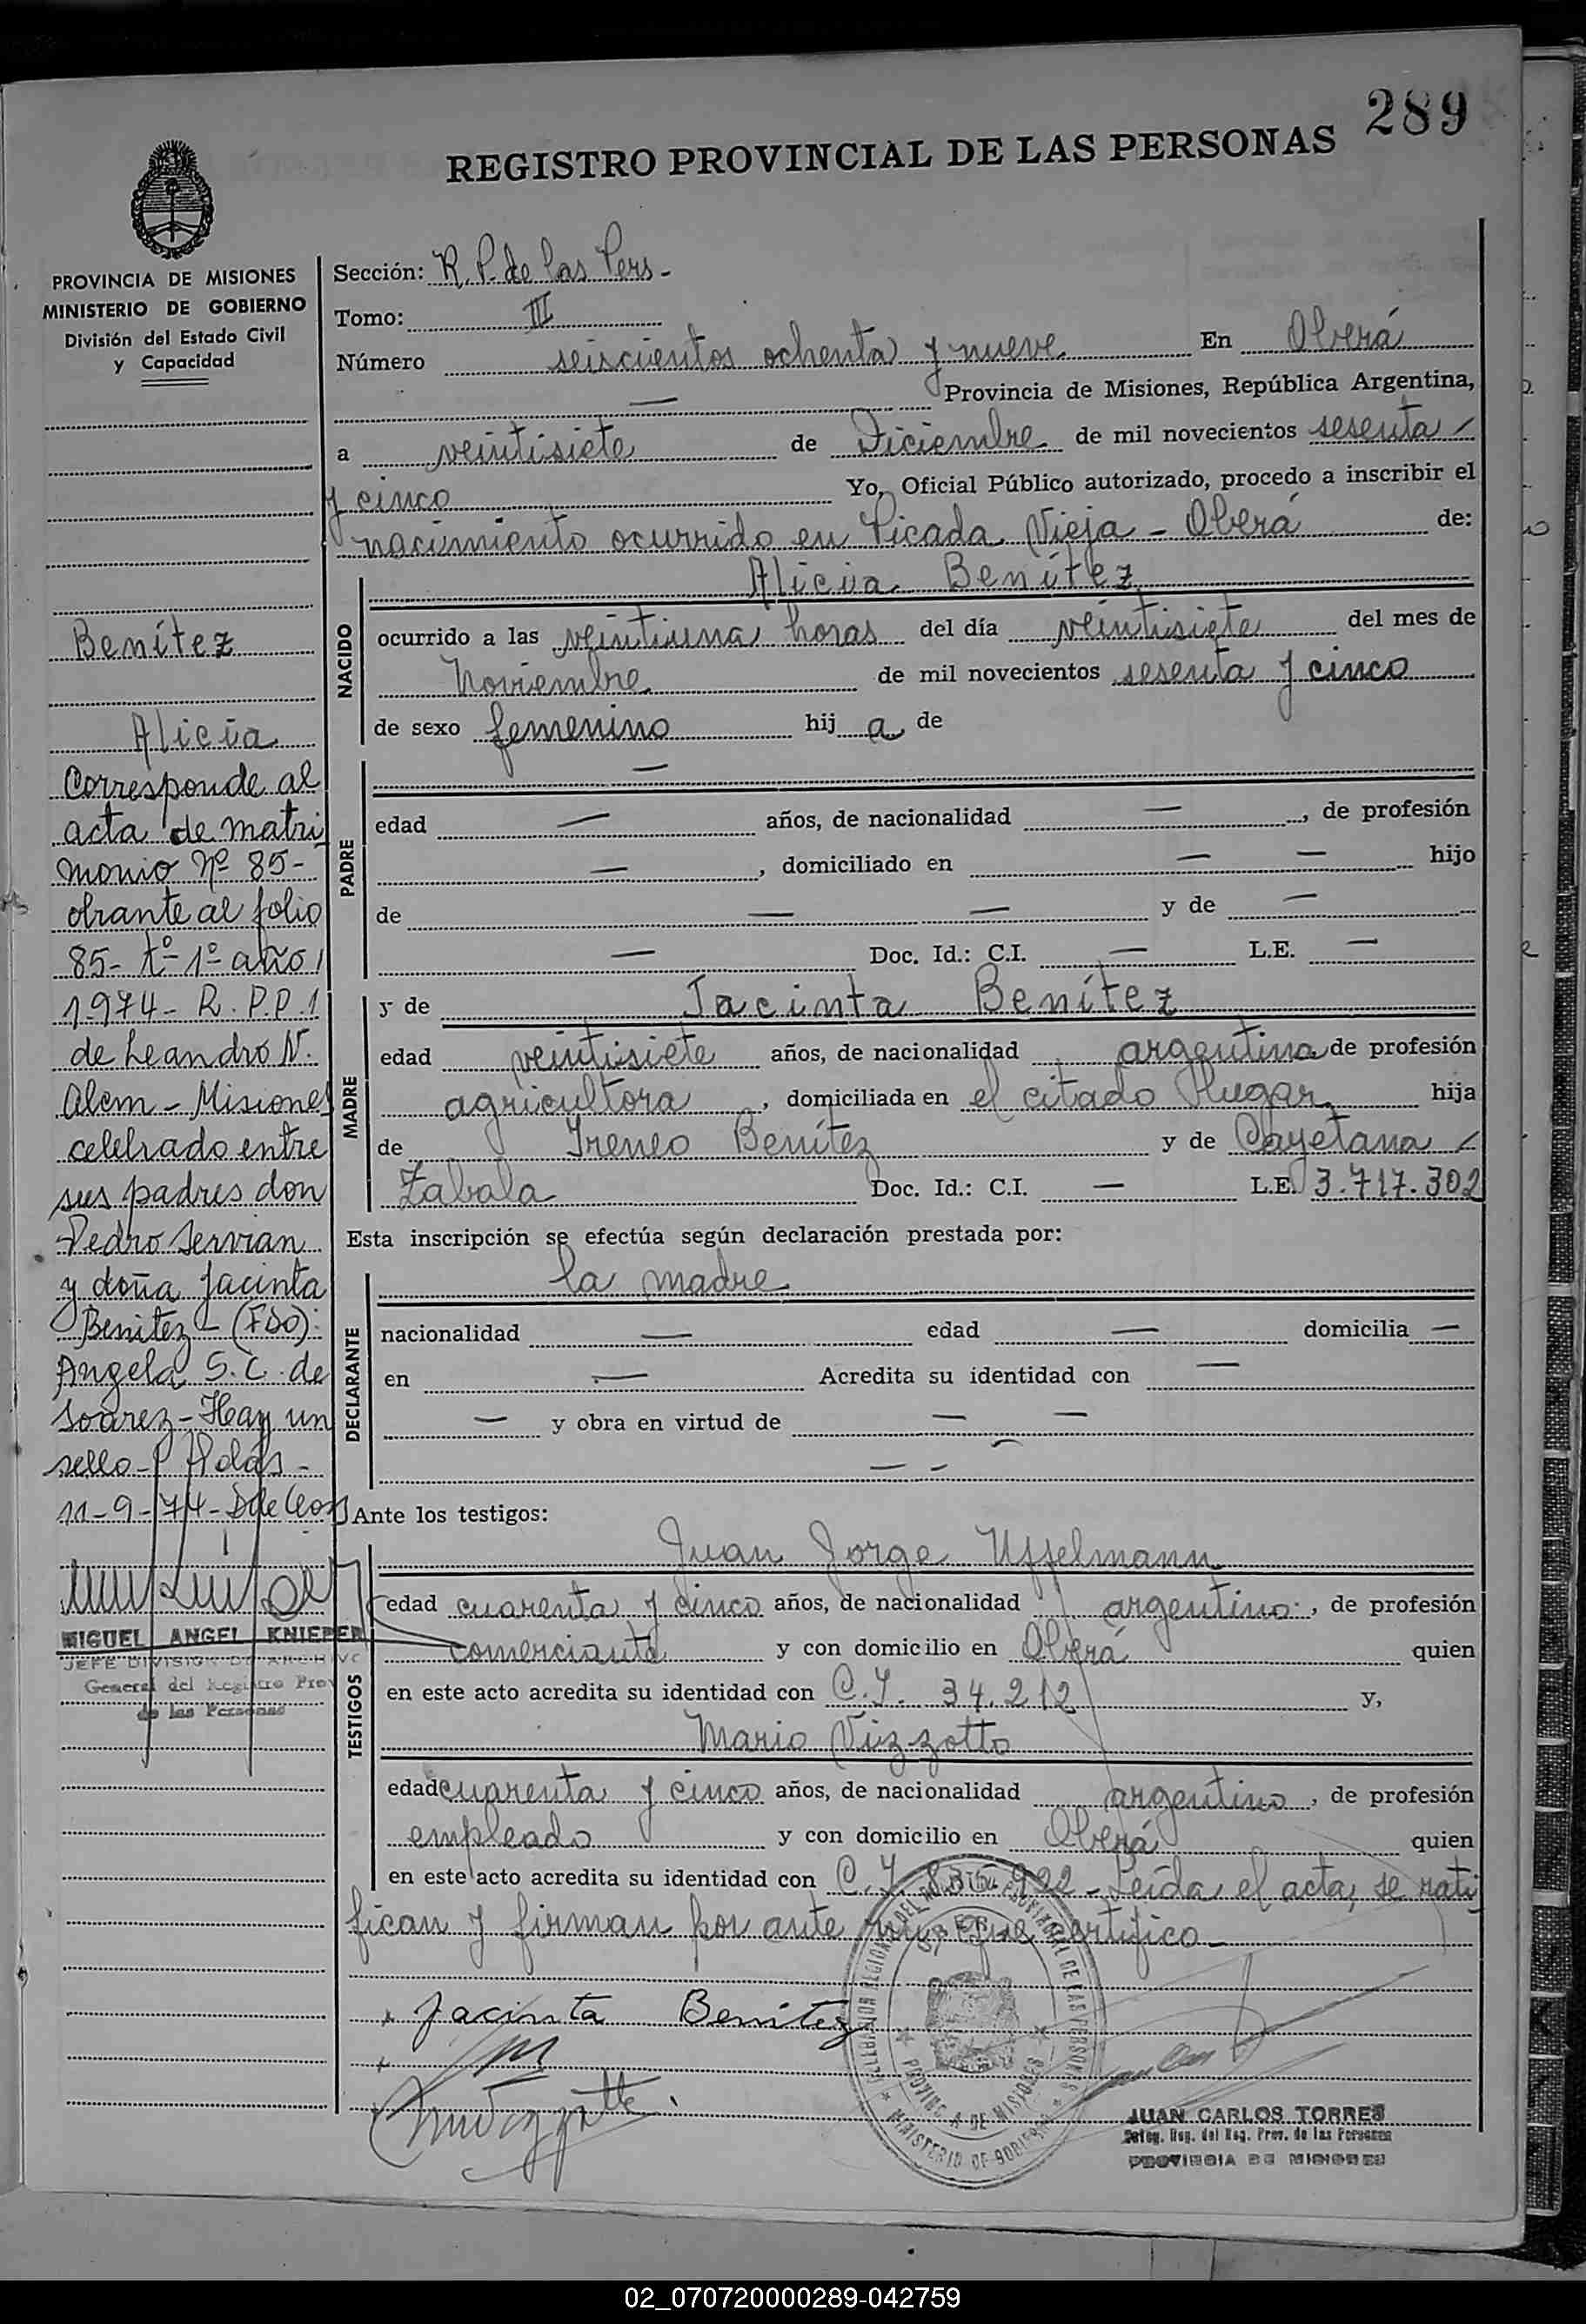 289
REGISTRO PROVINCIAL DE LAS PERSONAS
PROVINCIA DE MISIONES
MINISTERIO DE GOBIERNO
División del Estado Civil
y Capacidad
Benítez
Alicia
Corresponde al
acta de matri
monio Nº 85-
obrante al folio
85- tº- 1º año
1974- R. P. P. 1
de Leandro N.
Alem - Misiones
celebrado entre
sus padres don
Pedro Servian
y doña Jacinta
Benitez - (FDO):
Angela S. C. de
Soarez - Hay un
sello - P Hdas -
11-9-74-
MIGUEL ANGEL KNIEPER
JEFE DIVISION DE ARCHIVO
General del Registro Prov
de las Personas
Sección: R. P. de las Pers -
Tomo: III
Número seiscientos ochenta y nueve En Oberá
— Provincia de Misiones, República Argentina,
a veintisiete de Diciembre de mil novecientos sesenta /
y cinco Yo, Oficial Público autorizado, procedo a inscribir el
nacimiento ocurrido en Picada Vieja - Oberá de:
NACIDO
Alicia Benítez
ocurrido a las veintiuna horas del día veintisiete del mes de
Noviembre de mil novecientos sesenta y cinco
de sexo femenino hij a de
PADRE
—
edad — años, de nacionalidad —, de profesión
—, domiciliado en — — hijo
de — — y de —
— Doc. Id.: C.I. — L.E. —
MADRE
y de Jacinta Benítez
edad veintisiete años, de nacionalidad argentina de profesión
agricultora, domiciliada en el citado lugar, hija
de Ireneo Benítez y de Cayetana /
Zabala Doc. Id.: C.I. — L.E. 3.717.302
Esta inscripción se efectúa según declaración prestada por:
DECLARANTE
la madre
nacionalidad — edad — domicilia —
en — Acredita su identidad con —
— y obra en virtud de — —
— -
Ante los testigos:
TESTIGOS
Juan Jorge Uffelmann
edad cuarenta y cinco años, de nacionalidad argentino, de profesión
comerciante y con domicilio en Oberá quien
en este acto acredita su identidad con C. I. 34.212 y,
Mario Vizzotto
edad cuarenta y cinco años, de nacionalidad argentino, de profesión
empleado y con domicilio en Oberá quien
en este acto acredita su identidad con C. I. 835.922 - Leída el acta, se rati
fican y firman por ante mi, que certifico -
x Jacinta Benitez
x
PROVINCIA DE MISIONES
MINISTERIO DE GOBIERNO
JUAN CARLOS TORRES
Deleg. Reg. del Reg. Prov. de las Personas
PROVINCIA DE MISIONES
02_070720000289-042759